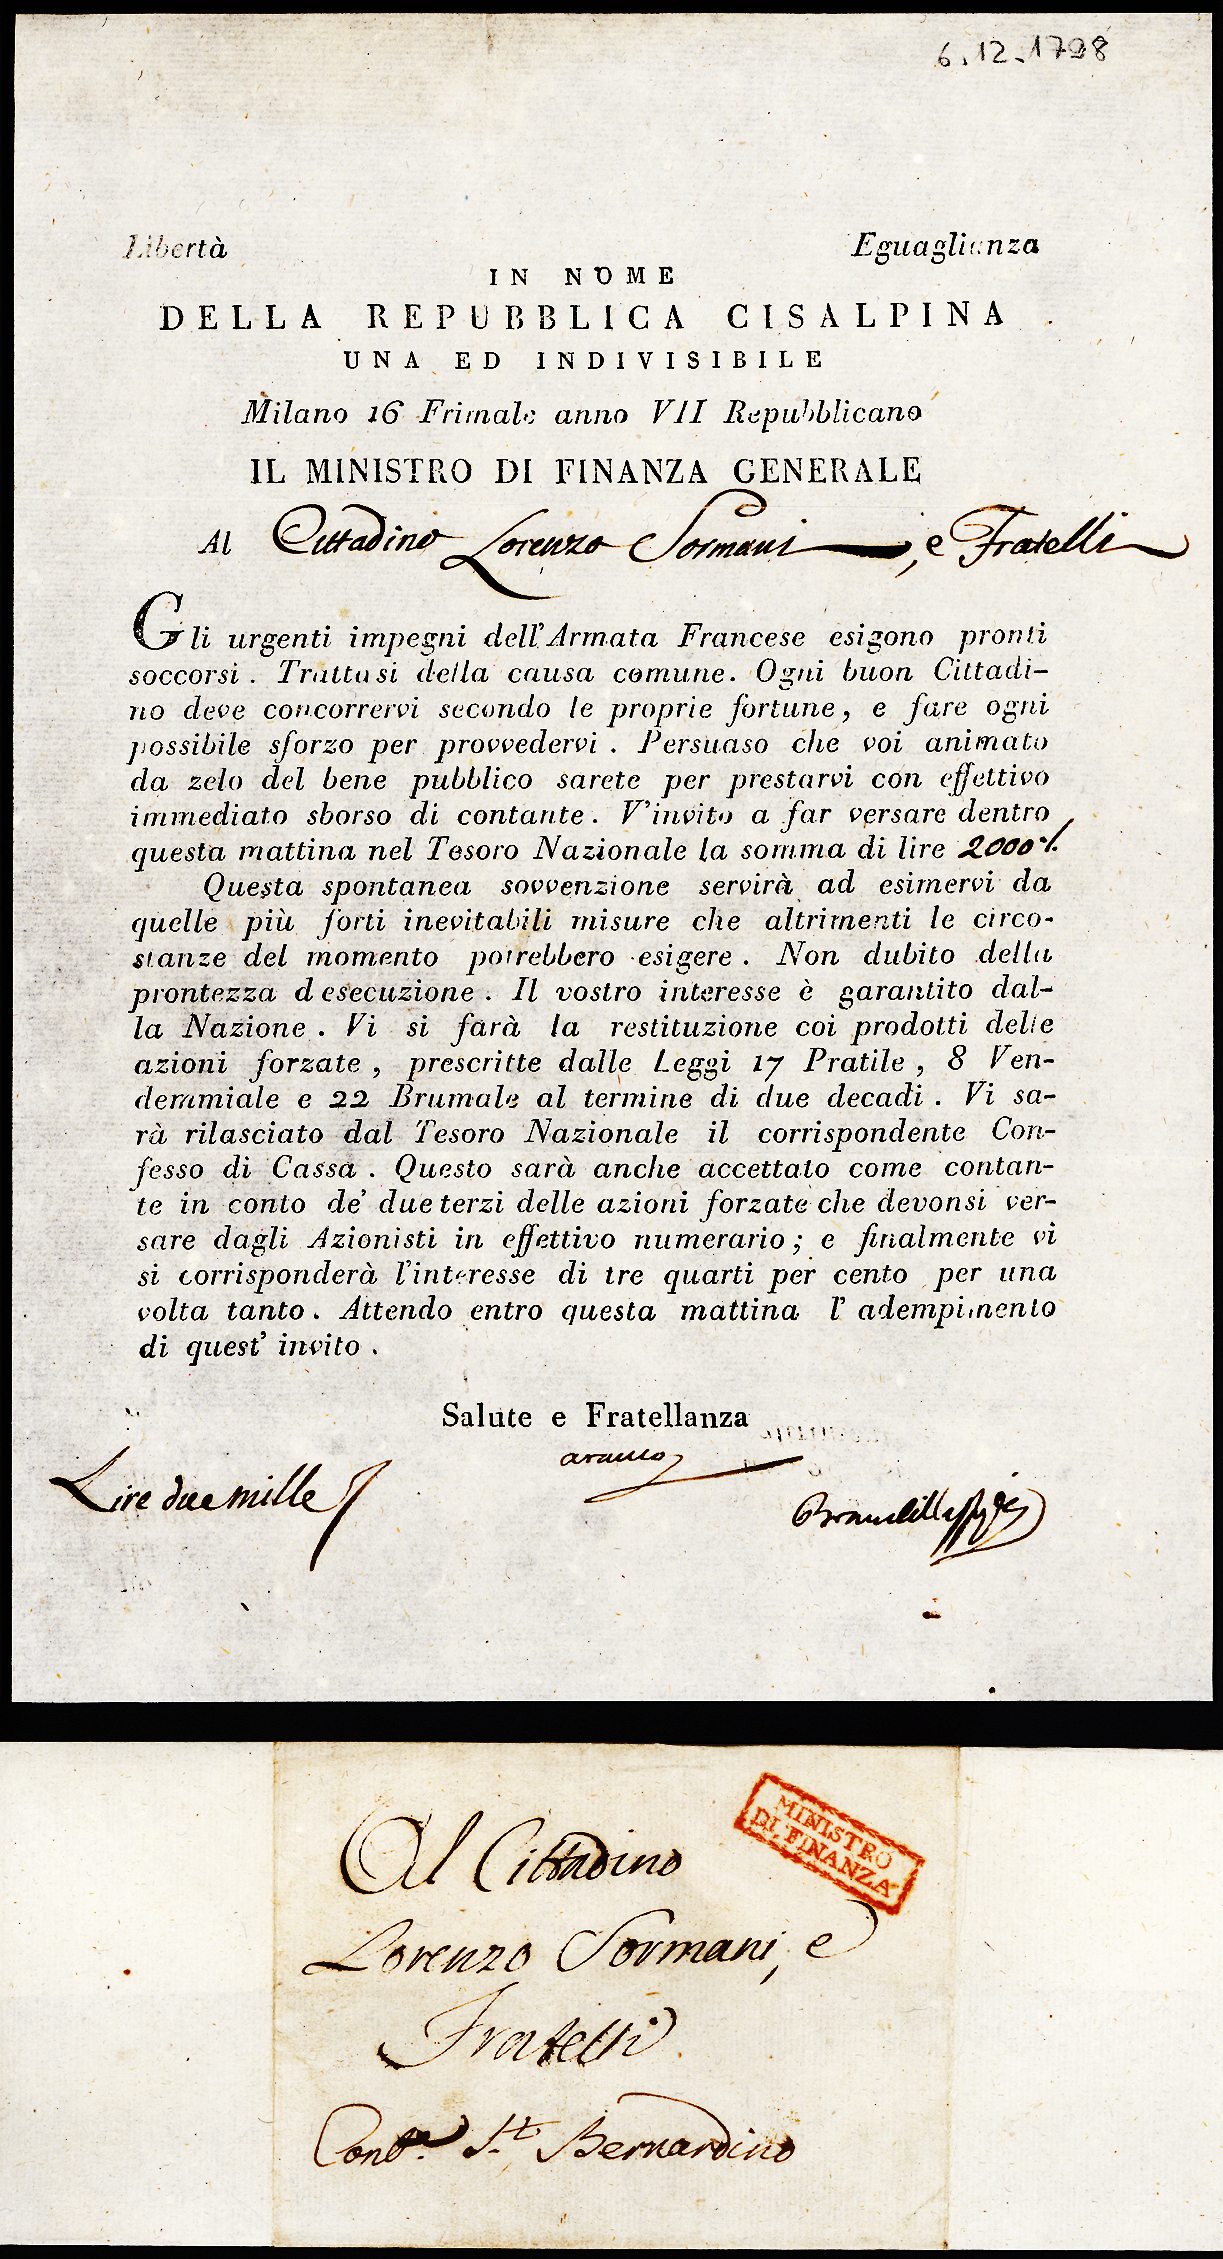 6.12.1798
Libertà Eguaglianza
IN NOME
DELLA REPUBBLICA CISALPINA
UNA ED INDIVISIBILE
Milano 16 Frimale anno VII Repubblicano
IL MINISTRO DI FINANZA GENERALE
Al Cittadino Lorenzo Sormani, e Fratelli
Gli urgenti impegni dell'Armata Francese esigono pronti
soccorsi. Trattasi della causa comune. Ogni buon Cittadi-
no deve concorrervi secondo le proprie fortune, e fare ogni
possibile sforzo per provvedervi. Persuaso che voi animato
da zelo del bene pubblico sarete per prestarvi con effettivo
immediato sborso di contante. V'invito a far versare dentro
questa mattina nel Tesoro Nazionale la somma di lire 2000
Questa spontanea sovvenzione servirà ad esimervi da
quelle più forti inevitabili misure che altrimenti le circo-
stanze del momento potrebbero esigere. Non dubito della
prontezza d esecuzione. Il vostro interesse è garantito dal-
la Nazione. Vi si farà la restituzione coi prodotti delle
azioni forzate, prescritte dalle Leggi 17 Pratile, 8 Ven-
demmiale e 22 Brumale al termine di due decadi. Vi sa-
rà rilasciato dal Tesoro Nazionale il corrispondente Con-
fesso di Cassa. Questo sarà anche accettato come contan-
te in conto de' due terzi delle azioni forzate che devonsi ver-
sare dagli Azionisti in effettivo numerario; e finalmente vi
si corrisponderà l'interesse di tre quarti per cento per una
volta tanto. Attendo entro questa mattina l' adempimento
di quest' invito.
Salute e Fratellanza
Lire due mille
MINISTRO
DI FINANZA
Al Cittadino
Lorenzo Sormani, e
Fratelli
St. Bernardino